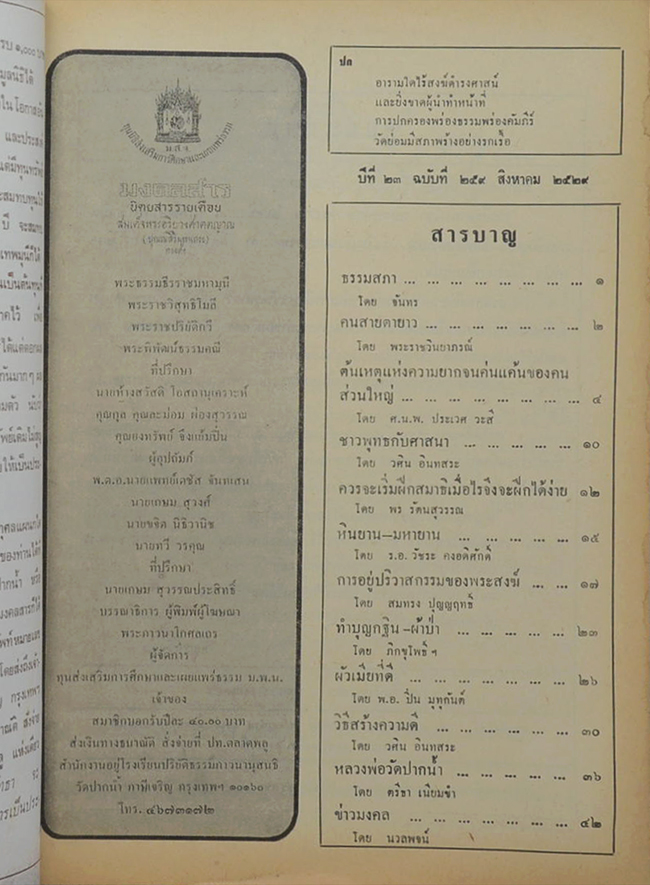 รบ ๑,๐๐๐ บาท
มูลนิธิได้
และประสงค์
ปี จะสมทบ
เทพมุนีก็ได้
ของท่านได้ที่
โดยส่งถึงเจ้า
กรุงเทพฯ
ทุนส่งเสริมการศึกษาและเผยแพร่ธรรม
ม.ส.จ.
มงคลสาร
นิตยสารรายเดือน
สมเด็จพระอริยวงศาคตญาณ
(ปุณฺณสิริมหาเถระ)
ทรงตั้ง
พระธรรมธีรราชมหามุนี
พระราชวิสุทธิโมลี
พระราชปริยัติกวี
พระพิพัฒน์ธรรมคณี
ที่ปรึกษา
นายห้างสวัสดิ์ โอสถานุเคราะห์
คุณกุล คุณละม่อม ผ่องสุวรรณ
คุณยงทรัพย์ จึงแย้มปิ่น
ผู้อุปถัมภ์
พ.ต.อ.นายแพทย์เตชัส จันทเสน
นายเกษม สุวงศ์
นายขจิต นิธิวานิช
นายทวี วรคุณ
ที่ปรึกษา
นายเกษม สุวรรณประสิทธิ์
บรรณาธิการ ผู้พิมพ์ผู้โฆษณา
พระภาวนาโกศลเถร
ผู้จัดการ
ทุนส่งเสริมการศึกษาและเผยแพร่ธรรม ม.พ.น.
เจ้าของ
สมาชิกบอกรับปีละ ๔๐.๐๐ บาท
ส่งเงินทางธนาณัติ สั่งจ่ายที่ ปท.ตลาดพลู
สำนักงานอยู่โรงเรียนปริยัติธรรมภาวนานุสนธิ์
วัดปากน้ำ ภาษีเจริญ กรุงเทพฯ ๑๐๑๖๐
โทร. ๔๖๗๓๑๗๒
ปล
อารามใดไร้สงฆ์ดำรงศาสน์
และยิ่งขาดผู้นำทำหน้าที่
การปกครองพร่องธรรมพร่องคัมภีร์
วัดย่อมมีสภาพร้างอย่างรกเรื้อ
ปีที่ ๒๓ ฉบับที่ ๒๕๙ สิงหาคม ๒๕๒๙
สารบาญ
ธรรมสภา ... ... ... ... ... ... ... ๑
โดย จันทร
คนสายตายาว ... ... ... ... ... ... ๒
โดย พระราชวินยาภรณ์
ต้นเหตุแห่งความยากจนค่นแค้นของคน
ส่วนใหญ่ ... ... ... ... ... ... ... ๔
โดย ศ.น.พ. ประเวศ วะสี
ชาวพุทธกับศาสนา ... ... ... ... ... ๑๐
โดย วศิน อินทสระ
ควรจะเริ่มฝึกสมาธิเมื่อไรจึงจะฝึกได้ง่าย ๑๒
โดย พร รัตนสุวรรณ
หินยาน—มหายาน ... ... ... ... ... ๑๕
โดย ร.อ. วัชระ คงอดิศักดิ์
การอยู่ปริวาสกรรมของพระสงฆ์ ... ... ๑๗
โดย สมทรง ปุญฺญฤทธิ์
ทำบุญกฐิน –ผ้าป่า ... ... ... ... ... ๒๓
โดย ภิกขุโพธิ์ ฯ
ผัวเมียที่ดี ... ... ... ... ... ... ... ๒๖
โดย พ.อ. ปิ่น มุทุกันต์
วิธีสร้างความดี ... ... ... ... ... ... ๓๐
โดย วศิน อินทสระ
หลวงพ่อวัดปากน้ำ ... ... ... ... ... ๓๖
โดย ตรีธา เนียมขำ
ข่าวมงคล ... ... ... ... ... ... ... ๔๒
โดย นวลพจน์